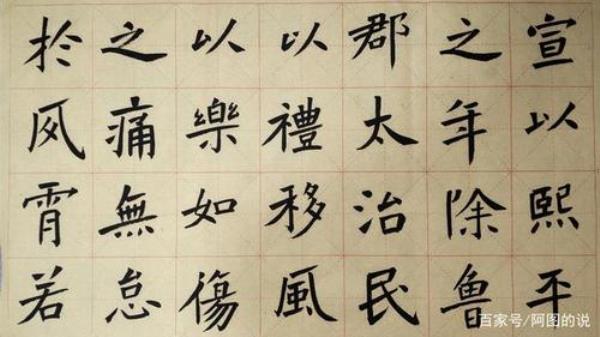 宣以熙平
之年除魯
郡太治民
以禮移風
以樂如傷
之痛無怠
扵夙霄若
百家号/阿图的说